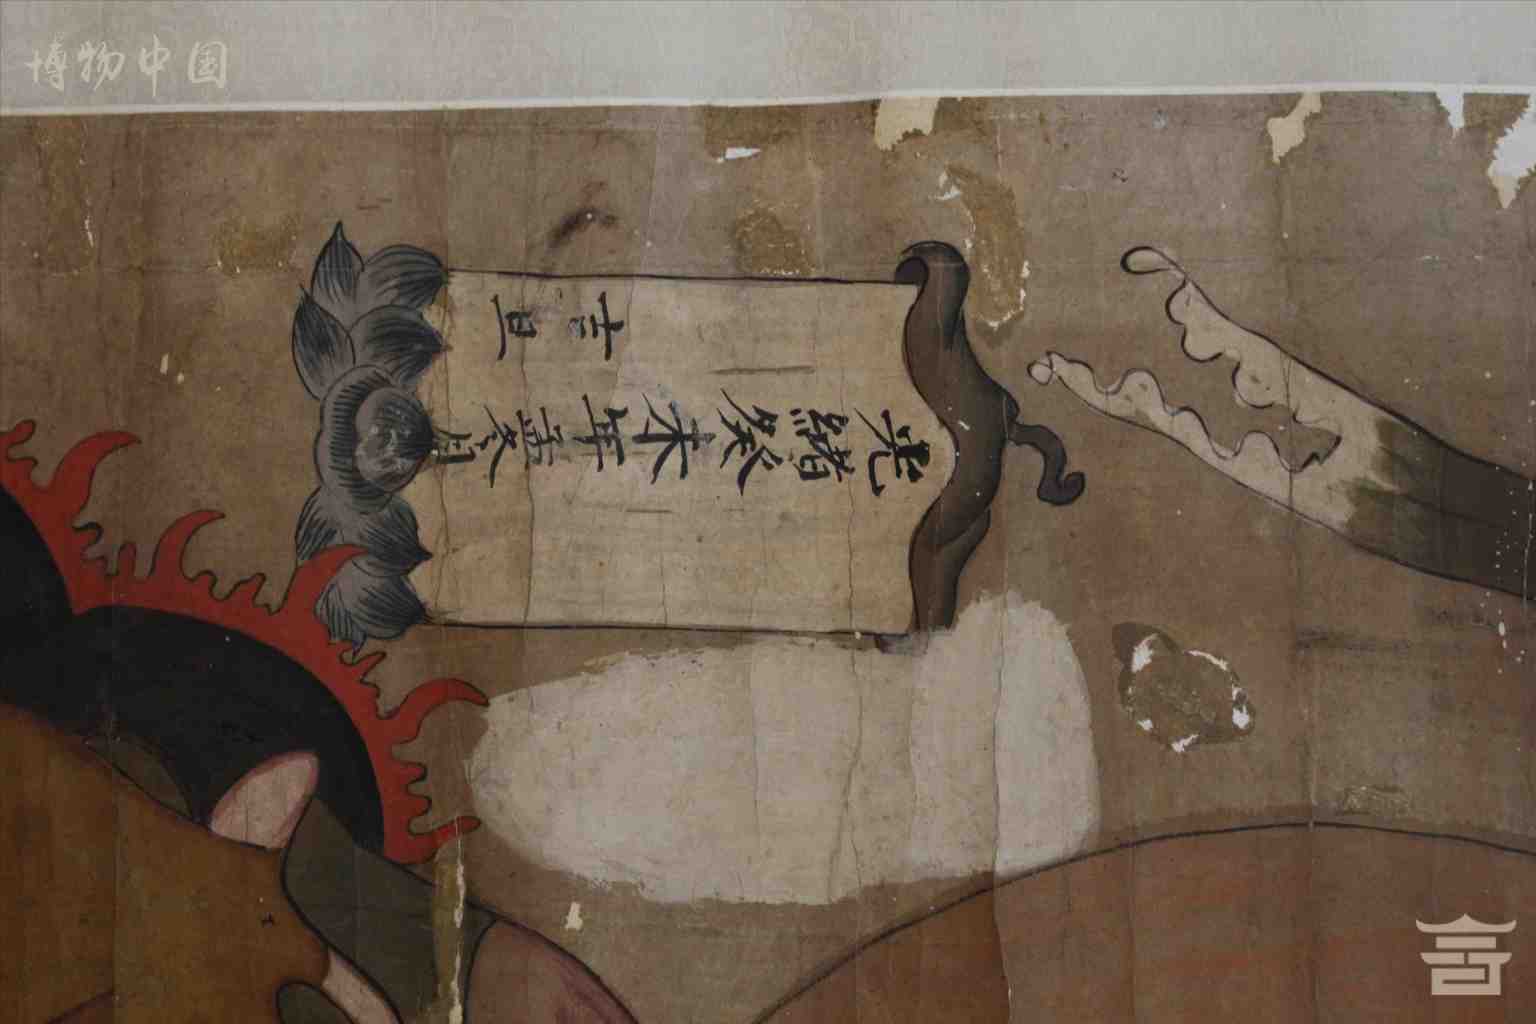 博物中国
光緒癸未年孟冬月
吉旦